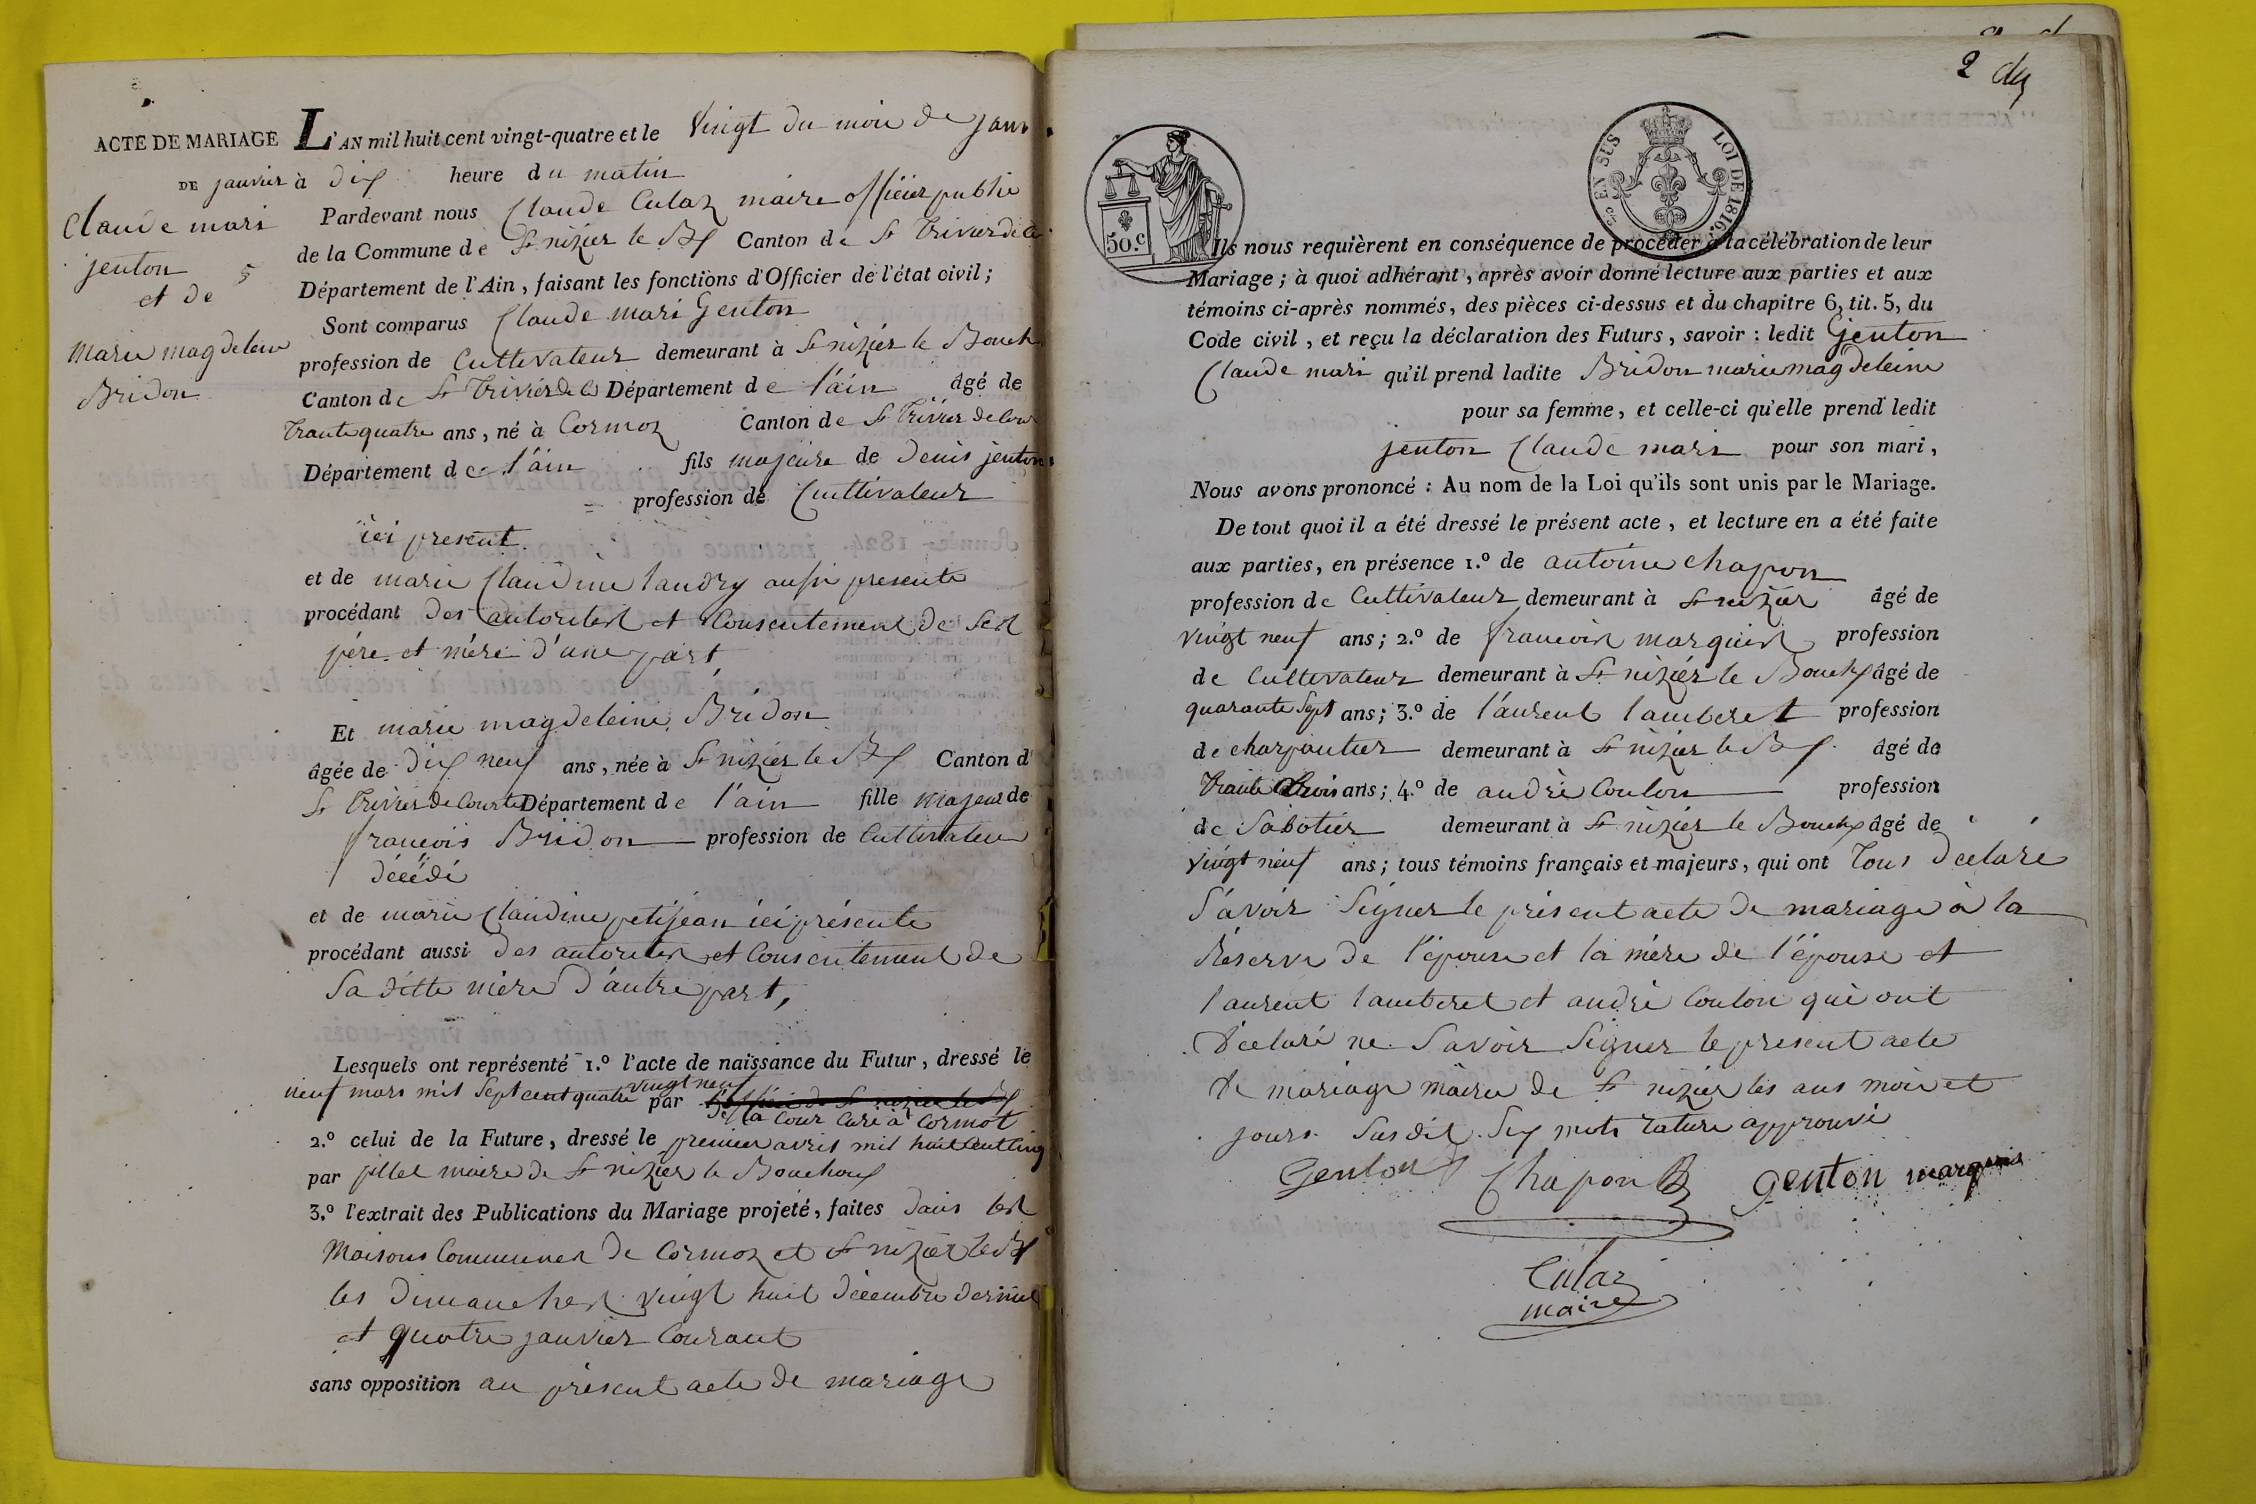 ACTE DE MARIAGE
DE janvier
Claude mari
jenton
et de
marie magdeleine
Bridon
L'AN mil huit cent vingt-quatre et le vingt du mois de janv
à dix heure du matin
Pardevant nous Claude Culaz maire officier public
de la Commune de St nizier le Bx Canton de St Trivier de C
Département de l'Ain, faisant les fonctions d'Officier de l'état civil;
Sont comparus Claude mari Genton
profession de Cultivateur demeurant à St nizier le Bouch
Canton de St Trivier de C Département de l'áin âgé de
Trante quatre ans, né à Cormoz Canton de St Trivier de Cour
Département de l'áin fils majeure de Denis jenton
profession de Cultivateur
ici présent
et de marie Claudine Landry aussi presente
procédant des autorités et Consentement de ses
père et mère d'une part,
Et marie magdeleine Bridon
âgée de dix neuf ans, née à St nizier le Bx Canton d
St Trivier de Courte Département de l'ain fille majeur de
francois Bridon profession de Cultivateur
décédé
et de marie Claudine petijean ici présente
procédant aussi des autorités et Consentement de
Sa ditte mère d'áutre part,
Lesquels ont représenté 1.º l'acte de naissance du Futur, dressé le
neuf mars mil Sept cent quatre vingt neuf par
la Cour Curé à Cormot
2.º celui de la Future, dressé le premier avril mil huit Cent Cinq
par pillet maire de St nizier le Bouchoux
3.º l'extrait des Publications du Mariage projeté, faites dans les
Maisons Communes de Cormoz et St nizier le Bx
les Dimanches vingt huit décembre dernier
et quatre janvier Courant
sans opposition au présent acte de mariage
2 du
50.c
5 c/s EN SUS LOI DE 1816.
Ils nous requièrent en conséquence de procéder à la célébration de leur
Mariage; à quoi adhérant, après avoir donné lecture aux parties et aux
témoins ci-après nommés, des pièces ci-dessus et du chapitre 6, tit. 5, du
Code civil, et reçu la déclaration des Futurs, savoir: ledit Genton
Claude mari qu'il prend ladite Bridon marie magdeleine
pour sa femme, et celle-ci qu'elle prend ledit
jenton Claude mari pour son mari,
Nous avons prononcé: Au nom de la Loi qu'ils sont unis par le Mariage.
De tout quoi il a été dressé le présent acte, et lecture en a été faite
aux parties, en présence 1.º de antoine chapon
profession de Cultivateur demeurant à St nizier âgé de
vingt neuf ans; 2.º de francois marquis profession
de Cultivateur demeurant à St nizier le Bouchx âgé de
quarante Sept ans; 3.º de l'áurent lamberet profession
de charpantier demeurant à St nizier le Bx âgé de
Trante Trois ans; 4.º de andré Coulon profession
de Sabotier demeurant à St nizier le Bouchx âgé de
vingt neuf ans; tous témoins français et majeurs, qui ont Tous déclaré
Sávoir Signer le présent acte de mariage à la
Réserve de l'épouse et la mère de l'épouse et
laurent lamberet et andré Coulon qui ont
déclaré ne Savoir Signer le present acte
de mariage màirie de St nizier les ans mois et
jours Susdit. Six mots rature approuvé
Genton Chapon genton marquis
Culaz
maire